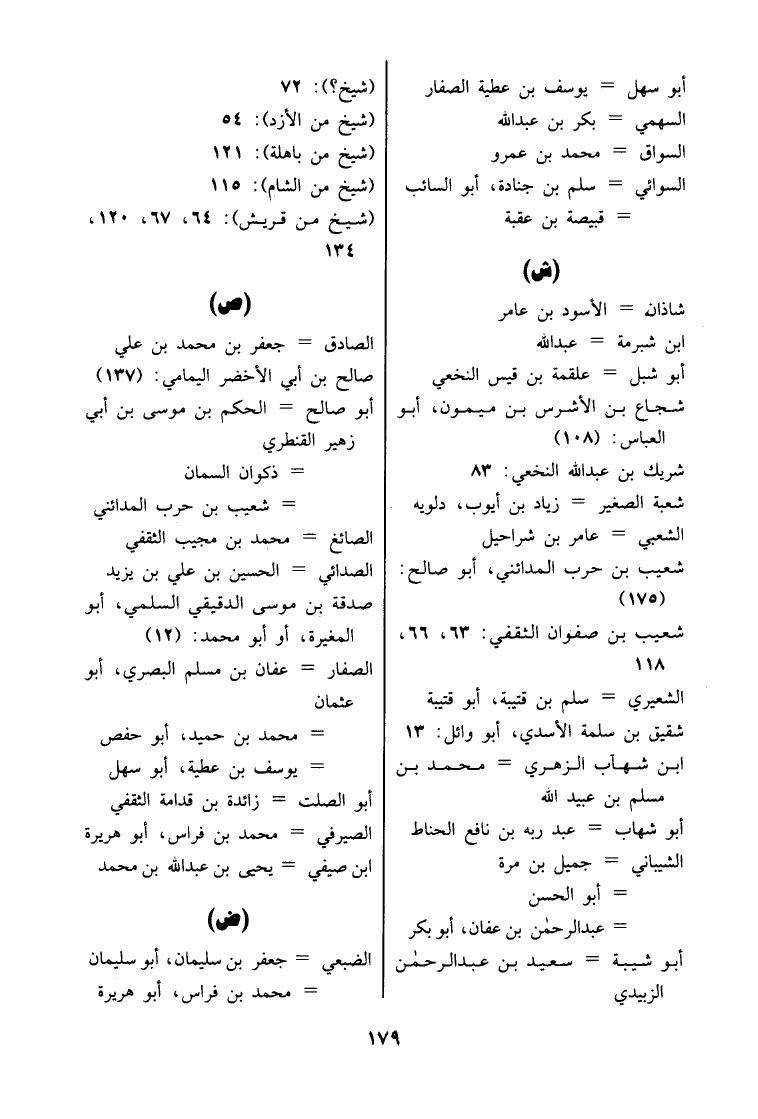 أبو سهل = يوسف بن عطية الصفار
السهمي = بكر بن عبدالله
السواق = محمد بن عمرو
السوائي = سلم بن جنادة، أبو السائب
= قبيصة بن عقبة
(ش)
شاذان = الأسود بن عامر
ابن شبرمة = عبدالله
أبو شبل = علقمة بن قيس النخعي
شجاع بن الأشرس بن ميمون، أبو
العباس: (١٠٨)
شريك بن عبدالله النخعي: ٨٣
شعبة الصغير = زياد بن أيوب، دلويه
الشعبي = عامر بن شراحيل
شعيب بن حرب المدائني، أبو صالح:
(١٧٥)
شعيب بن صفوان الثقفي: ٦٣، ٦٦،
١١٨
الشعيري = سلم بن قتيبة، أبو قتيبة
شقيق بن سلمة الأسدي، أبو وائل: ١٣
ابن شهاب الزهري = محمد بن
مسلم بن عبيد الله
أبو شهاب = عبد ربه بن نافع الحناط
الشيباني = جميل بن مرة
= أبو الحسن
= عبدالرحمٰن بن عفان، أبو بكر
أبو شيبة = سعيد بن عبدالرحمٰن
الزبيدي
(شيخ؟): ٧٢
(شيخ من الأزد): ٥٤
(شيخ من باهلة): ١٢١
(شيخ من الشام): ١١٥
(شيخ من قريش): ٦٤، ٦٧، ١٢٠،
١٣٤
(ص)
الصادق = جعفر بن محمد بن علي
صالح بن أبي الأخضر اليمامي: (١٣٧)
أبو صالح = الحكم بن موسى بن أبي
زهير القنطري
= ذكوان السمان
= شعيب بن حرب المدائني
الصائغ = محمد بن مجيب الثقفي
الصدائي = الحسين بن علي بن يزيد
صدقة بن موسى الدقيقي السلمي، أبو
المغيرة، أو أبو محمد: (١٢)
الصفار = عفان بن مسلم البصري، أبو
عثمان
= محمد بن حميد، أبو حفص
= يوسف بن عطية، أبو سهل
أبو الصلت = زائدة بن قدامة الثقفي
الصيرفي = محمد بن فراس، أبو هريرة
ابن صيفي = يحيى بن عبدالله بن محمد
(ض)
الضبعي = جعفر بن سليمان، أبو سليمان
= محمد بن فراس، أبو هريرة
١٧٩